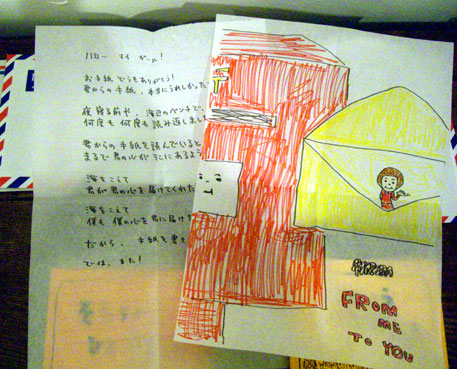 ハロー マイ ガール!
お手紙 どうもありがとう!
君からの手紙、本当にうれしかった
夜寝る前や、海辺のベンチで、
何度も何度も読み返しまし
君からの手紙を読んでいると
まるで君の心がそこにあるよう
海をこえて
君が君の心を届けてくれた
海をこえて
僕も僕の心を君に届け
だから、手紙を書き
では、また!
〒
FROM
ME
TO YOU